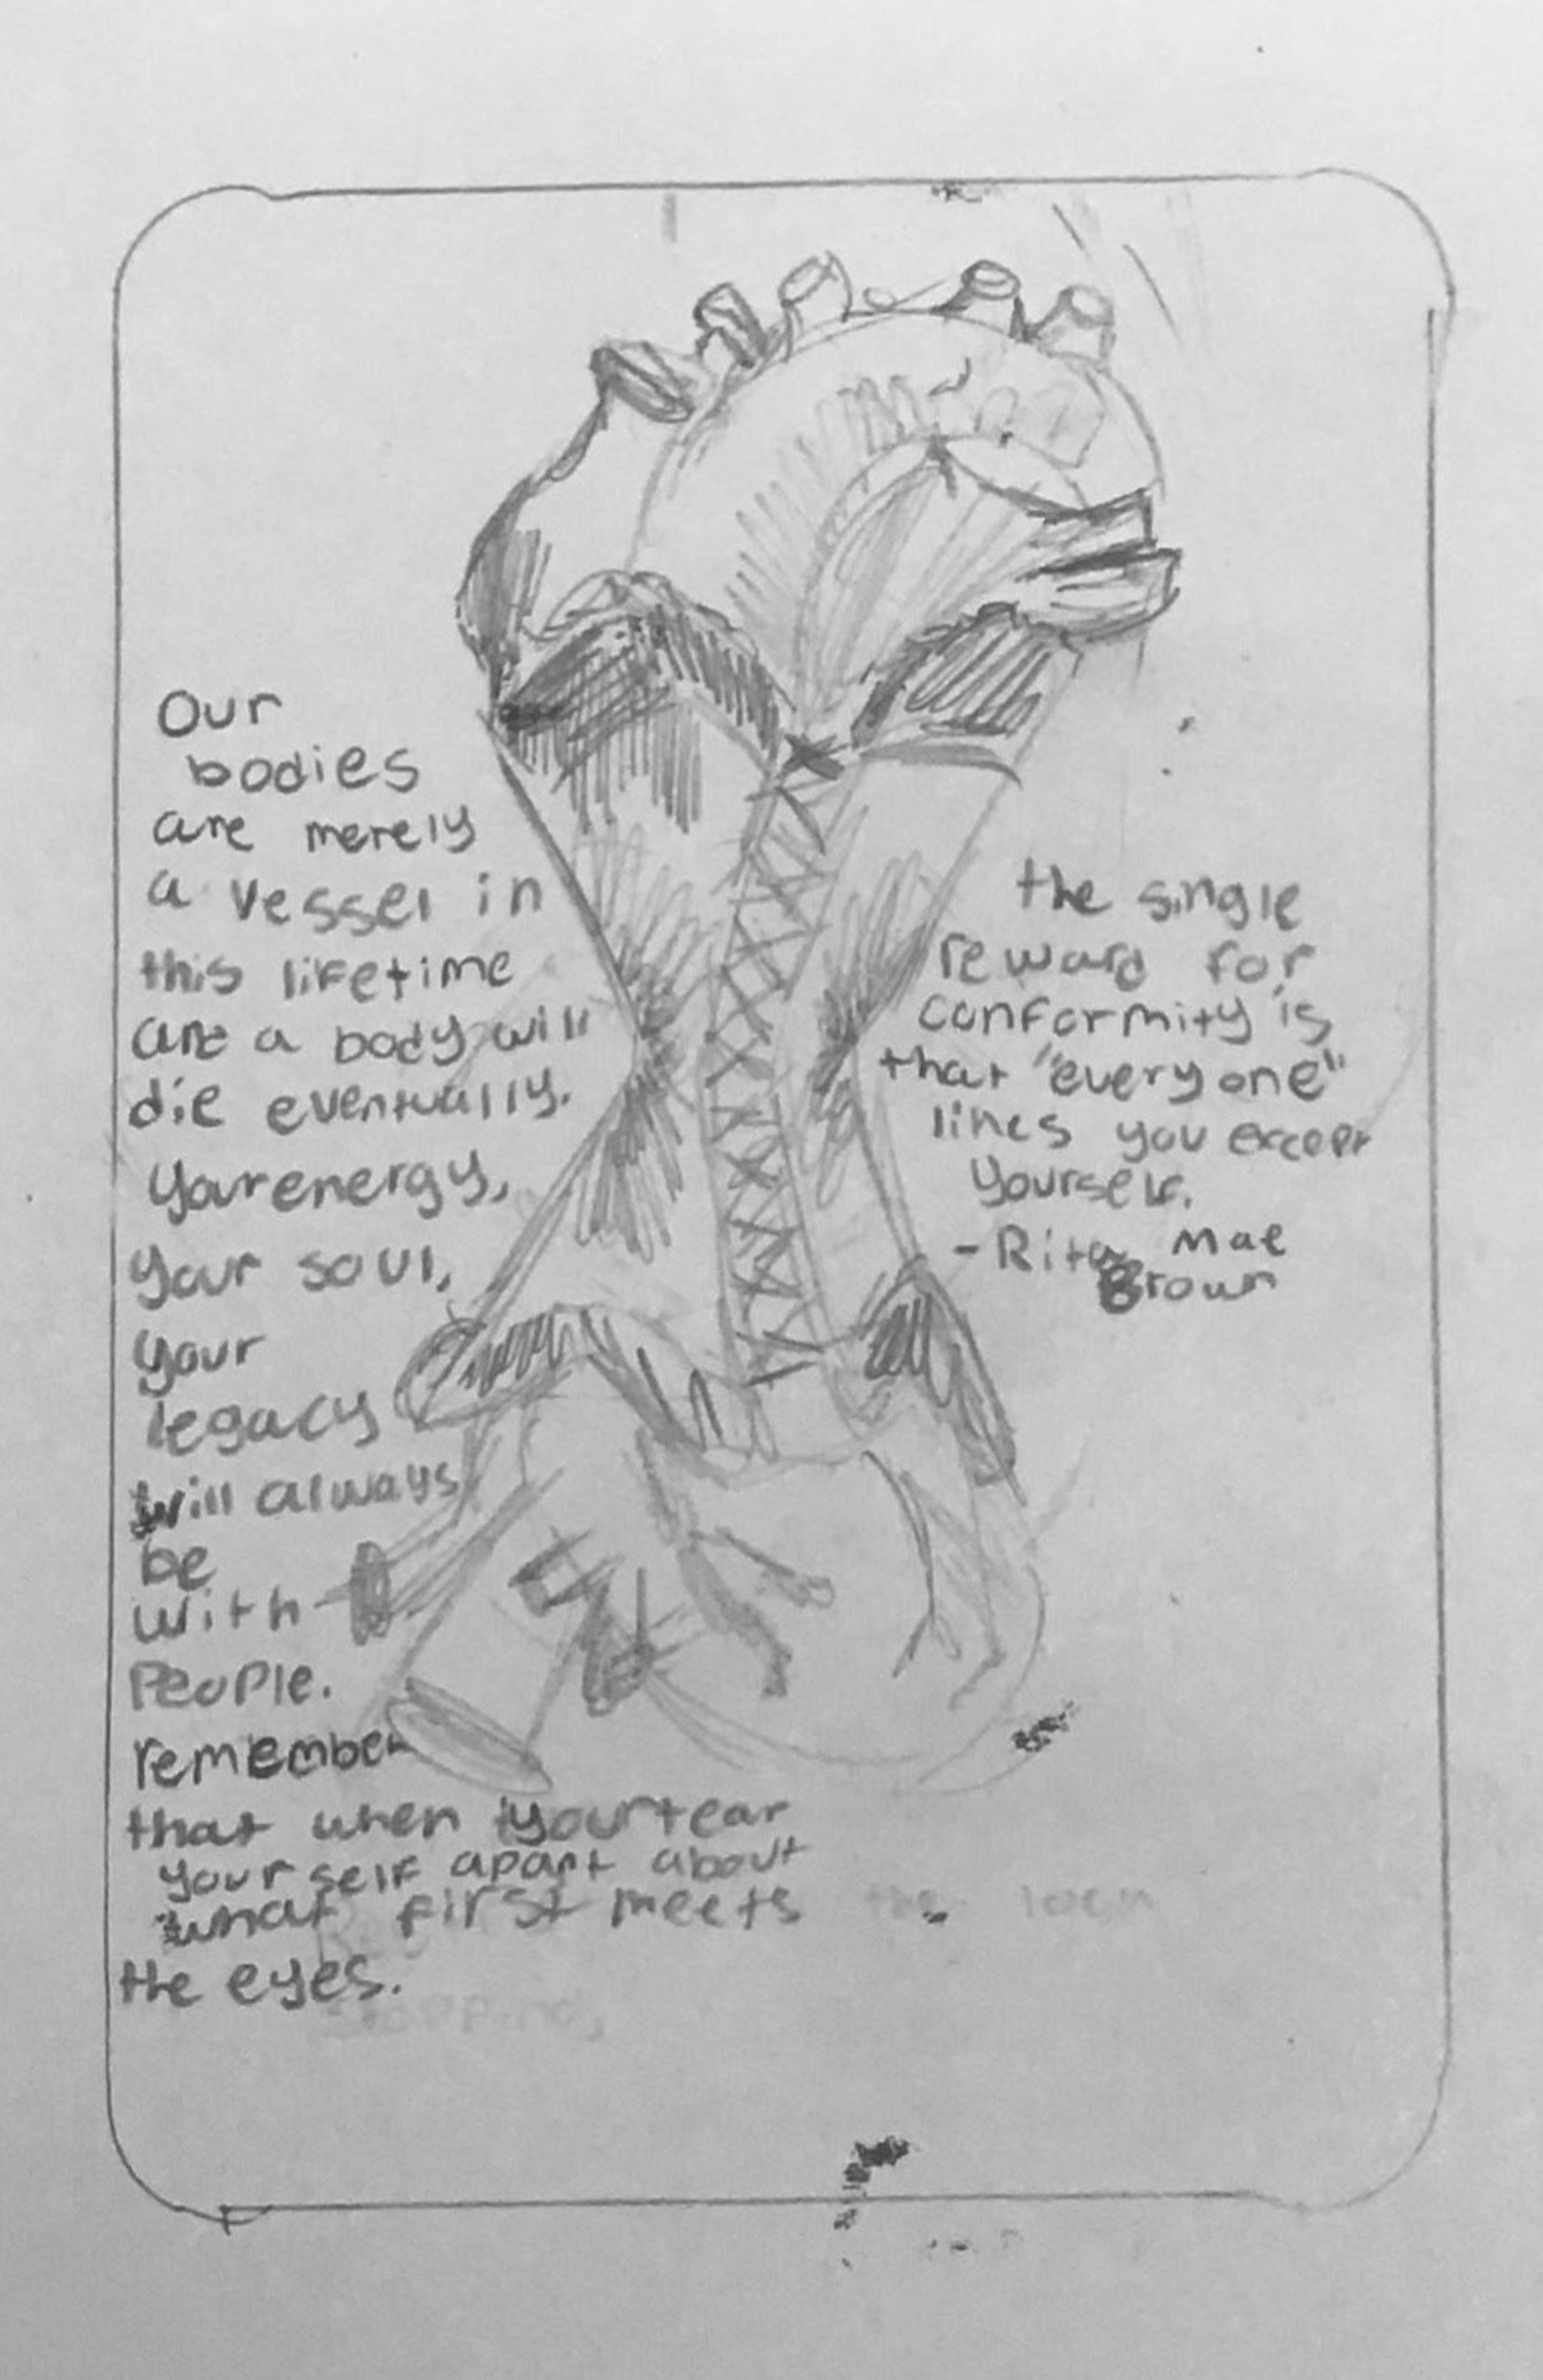 Our
bodies
are merely
a vessel in
this lifetime
are a body will
die eventually.
Your energy,
Your soul,
your
legacy
will always
be
with
People.
remember
that when your tear
your self apart about
what first meets
the eyes.
the single
reward for
conformity is
that "everyone"
likes you except
yourself.
- Rita Mae
Brown